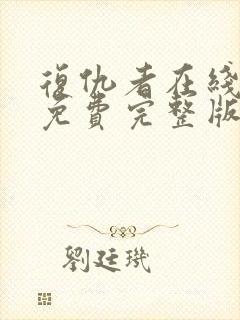 復仇者在綫
免費完整版
劉廷璣